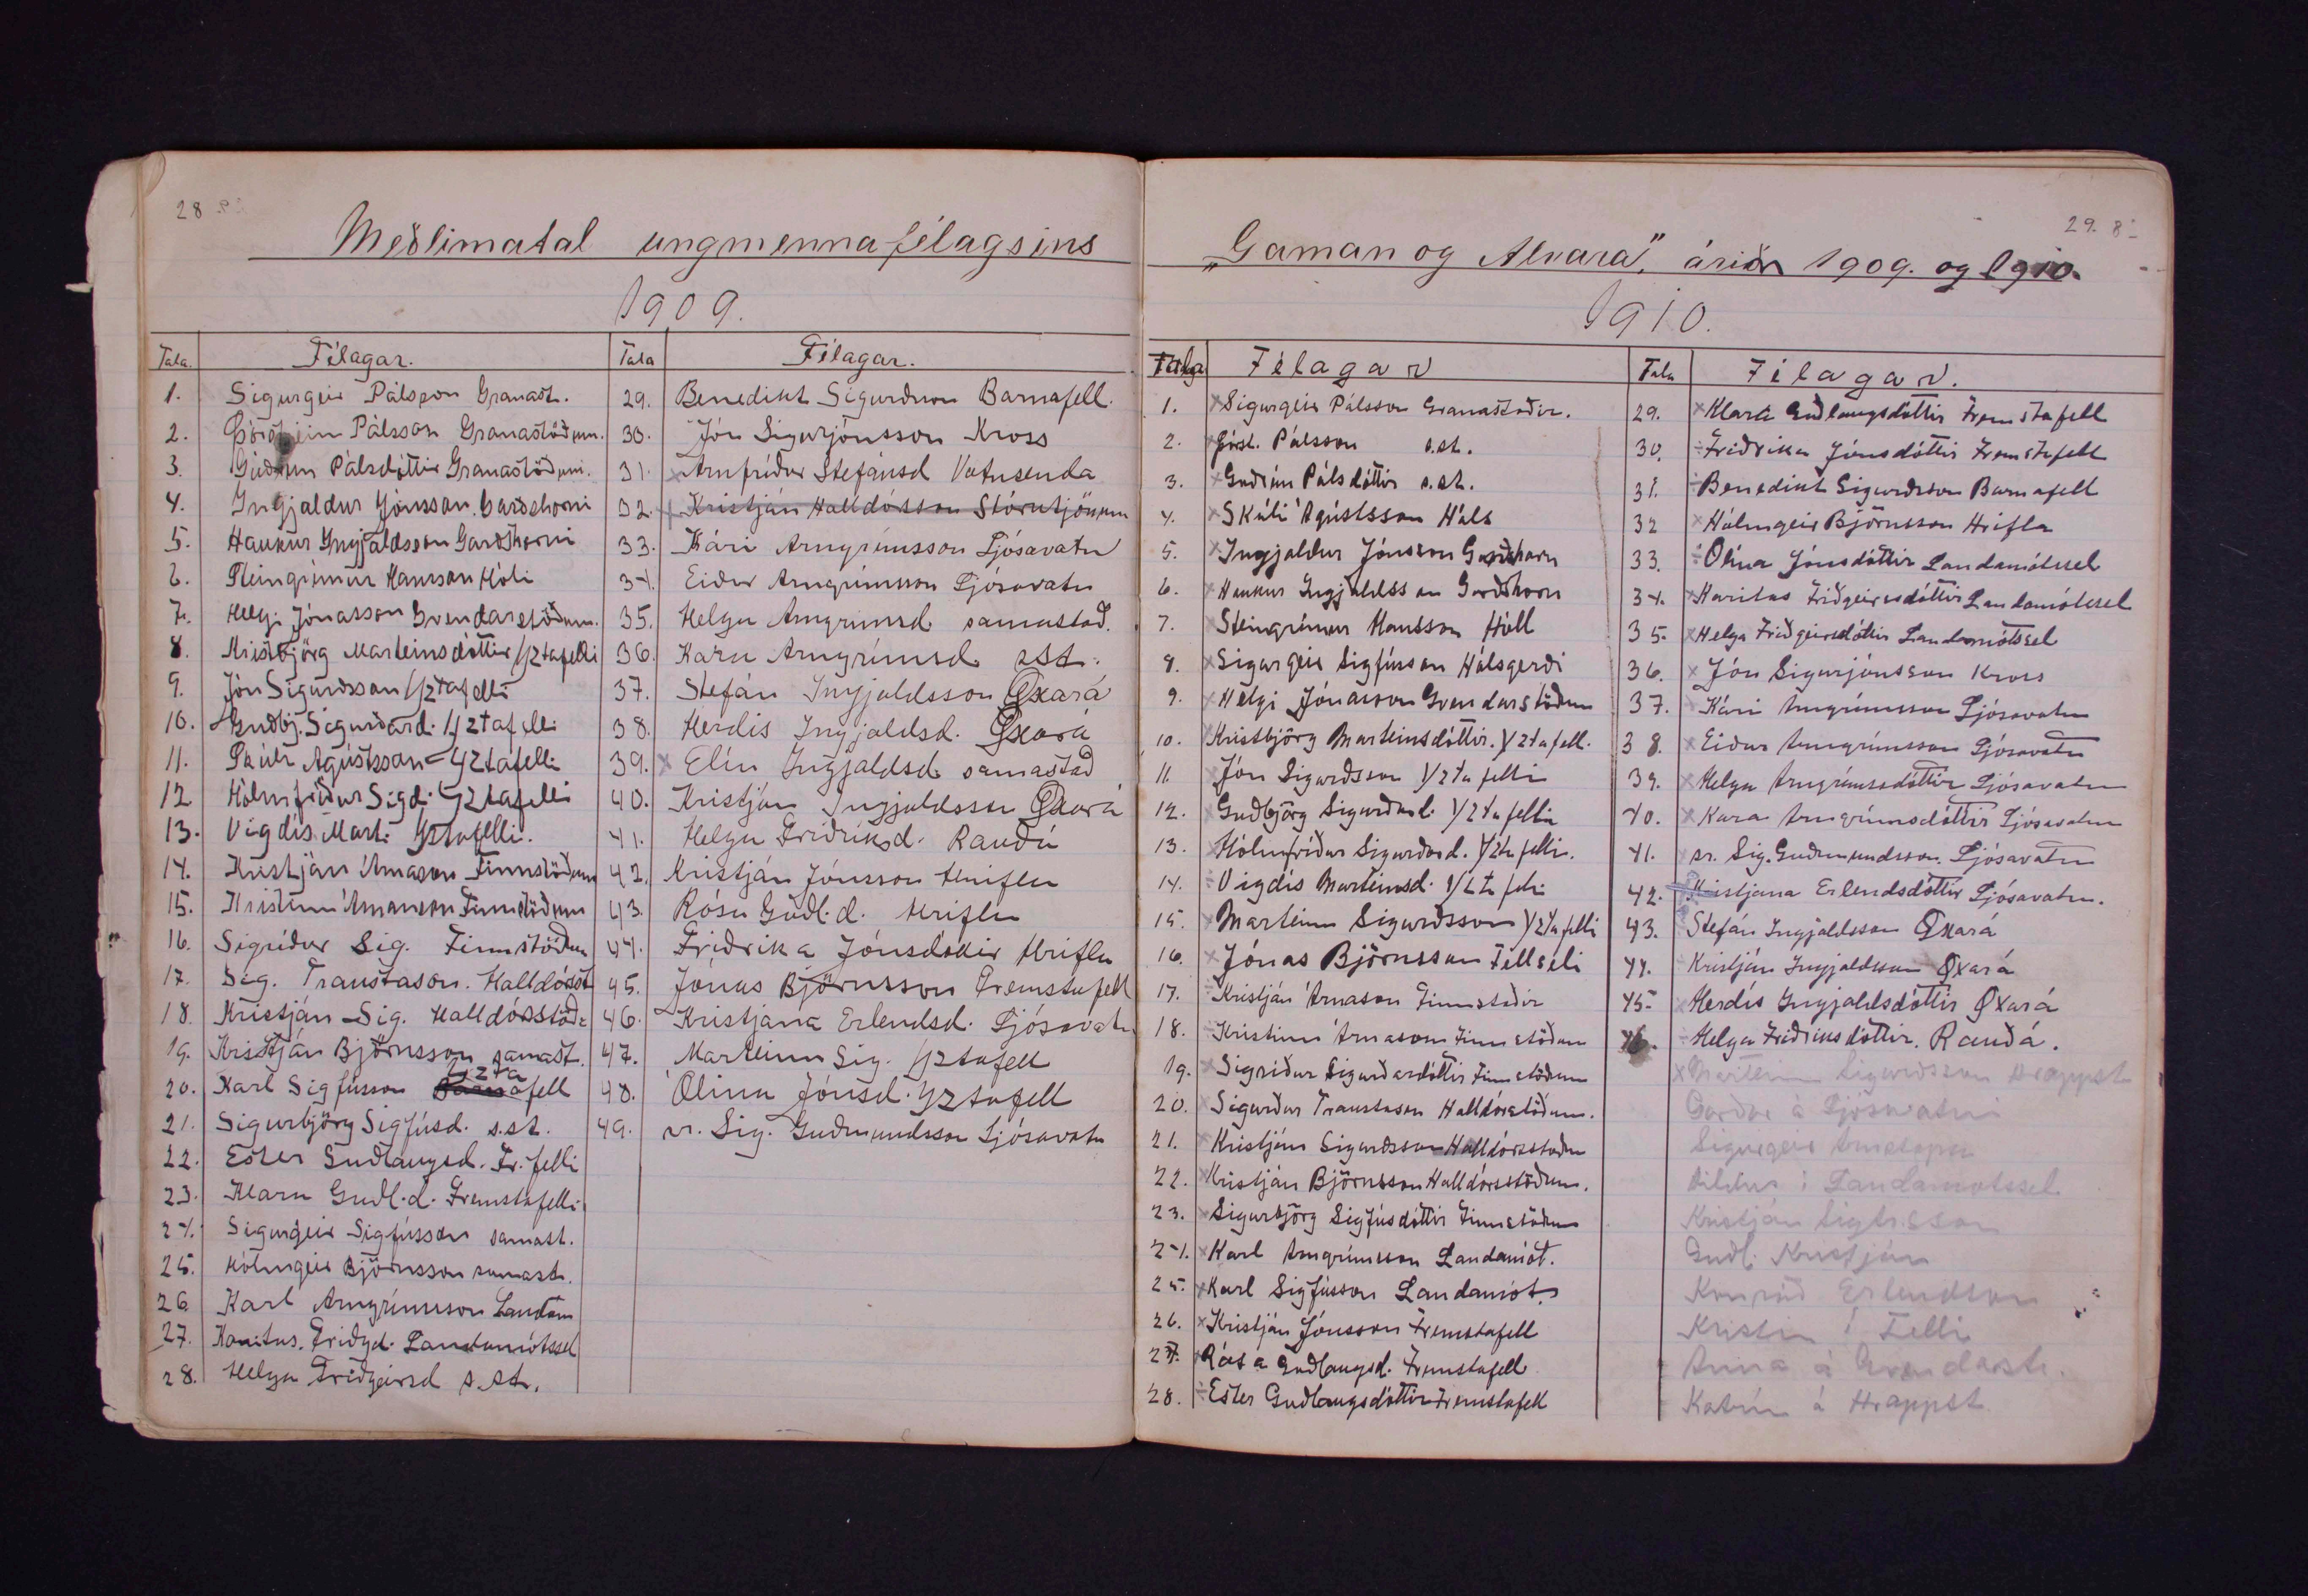 28
Meðlimatal ungmennafélagsins
1909.
Tala. Félagar.
1. Sigurgeir Pálsson Granast.
2. Þórsteinn Pálsson Granastöðum.
3. Guðrún Pálsdóttir Granastöðum.
4. Ingjaldur Jónsson Garðshorni
5. Haukur Ingjaldsson Garðshorni
6. Steingrímur Hansson Hóli
7. Helgi Jónasson Gvendarstöðum.
8. Kristbjörg Marteinsdóttir Yztafelli
9. Jón Sigurðsson Yztafelli
10. Guðbj. Sigurðard. Yztafelli
11. Skúli Ágústsson Yztafelli
12. Hólmfríður Sigd. Yztafelli
13. Vigdís Mart. Yztafelli.
14. Kristján Árnason Finnstöðum
15. Kristinn Árnason Finnstöðum
16. Sigríður Sig. Finnstöðum
17. Sig. Traustason. Halldórsst
18. Kristján Sig. Halldórsstöð:
19. Kristján Björnsson samast.
20. Karl Sigfússon Yztafell
21. Sigurbjörg Sigfúsd. s.st.
22. Ester Guðlaugsd. Fr.felli
23. Klara Guðl.d. Fremstafelli
24. Sigurgeir Sigfússon samast.
25. Hólmgeir Björnsson samast.
26. Karl Arngrímsson Landam
27. Karitas. Friðgd. Landamótssel
28. Helga Friðgeirsd s.st.
Tala Félagar.
29. Benedikt Sigurðsson Barnafell.
30. Jón Sigurjónsson Kross
31. × Arnfríður Stefánsd Vatnsenda
32. × Kristján Halldórsson Stórutjörnum
33. Kári Arngrímsson Ljósavatn
34. Eiður Arngrímsson Ljósavatn
35. Helga Arngrímsd. samastað.
36. Kara Arngrímsd sst.
37. Stefán Ingjaldsson Öxará
38. Herdís Ingjaldsd. Öxará
39. × Elín Ingjaldsd. samastað
40. Kristján Ingjaldsson Öxará
41. Helga Friðriksd. Rauðá
42. Kristján Jónsson Hriflu
43. Rósa Guðl.d. Hriflu
44. Friðrika Jónsdóttir Hriflu
45. Jónas Björnsson Fremstafell
46. Kristjana Erlendsd. Ljósavatn
47. Marteinn Sig. Yztafell
48. Ólína Jónsd. Yztafell
49. sr. Sig. Guðmundsson Ljósavatn
29.
„Gaman og Alvara", árin 1909. og 1910.
1910.
Tala Félagar
1. × Sigurgeir Pálsson Granastöðir.
2. × Þórst. Pálsson s.st.
3. × Guðrún Pálsdóttir s.st.
4. × Skúli Ágústsson Háls
5. × Ingjaldur Jónsson Garðshorn
6. × Haukur Ingjaldsson Garðshorn
7. Steingrímur Hansson Hóll
8. × Sigurgeir Sigfússon Hálsgerði
9. × Helgi Jónasson Gvendarstöðum
10. × Kristbjörg Marteinsdóttir. Yztafell.
11. × Jón Sigurðsson Yztafelli
12. × Guðbjörg Sigurðard. Yztafelli
13. × Hólmfríður Sigurðard. Yztafelli.
14. ÷ Vigdís Marteinsd. Yztafelli
15. × Marteinn Sigurðsson Yztafelli
16. × Jónas Björnsson Fellseli
17. ÷ Kristján Árnason Finnstaðir
18. ÷ Kristinn Árnason Finnstöðum
19. × Sigríður Sigurðardóttir Finnstöðum
20. × Sigurður Traustason Halldórsstöðum.
21. × Kristján Sigurðsson Halldórsstaðir
22. × Kristján Björnsson Halldórsstöðum.
23. × Sigurbjörg Sigfúsdóttir Finnstöðum
24. × Karl Arngrímsson Landamót.
25. × Karl Sigfússon Landamót.
26. × Kristján Jónsson Fremstafell
27. × Rósa Guðlaugsd. Fremstafell
28. ÷ Ester Guðlaugsdóttir Fremstafell
Tala Félagar.
29. × Klara Guðlaugsdóttir Fremstafell
30. ÷ Friðrika Jónsdóttir Fremstafell
31. ÷ Benedikt Sigurðsson Barnafell
32 × Hólmgeir Björnsson Hrifla
33. ÷ Ólína Jónsdóttir Landamótssel
34. × Karitas Friðgeirsdóttir Landamótssel
35. × Helga Friðgeirsdóttir Landamótssel
36. × Jón Sigurjónsson Kross
37. × Kári Arngrímsson Ljósavatn
38. × Eiður Arngrímsson Ljósavatn
39. × Helga Arngrímsdóttir Ljósavatn
40. × Kara Arngrímsdóttir Ljósavatn
41. × sr. Sig. Guðmundsson. Ljósavatn
42. Kristjana Erlendsdóttir Ljósavatn.
43. Stefán Ingjaldsson Öxará
44. × Kristján Ingjaldsson Öxará
45. × Herdís Ingjaldsdóttir Öxará
46. ÷ Helga Friðriksdóttir. Rauðá.
× Marteinn Sigurðsson Hrappst
Garðar á Ljósavatni
Sigurgeir
Hildur í Landamotssel
Kristján
Guðl. Kristján
Konráð Erlendsson
Kristín í Felli
Anna á Gvendarst.
Katrín á Hrappst.